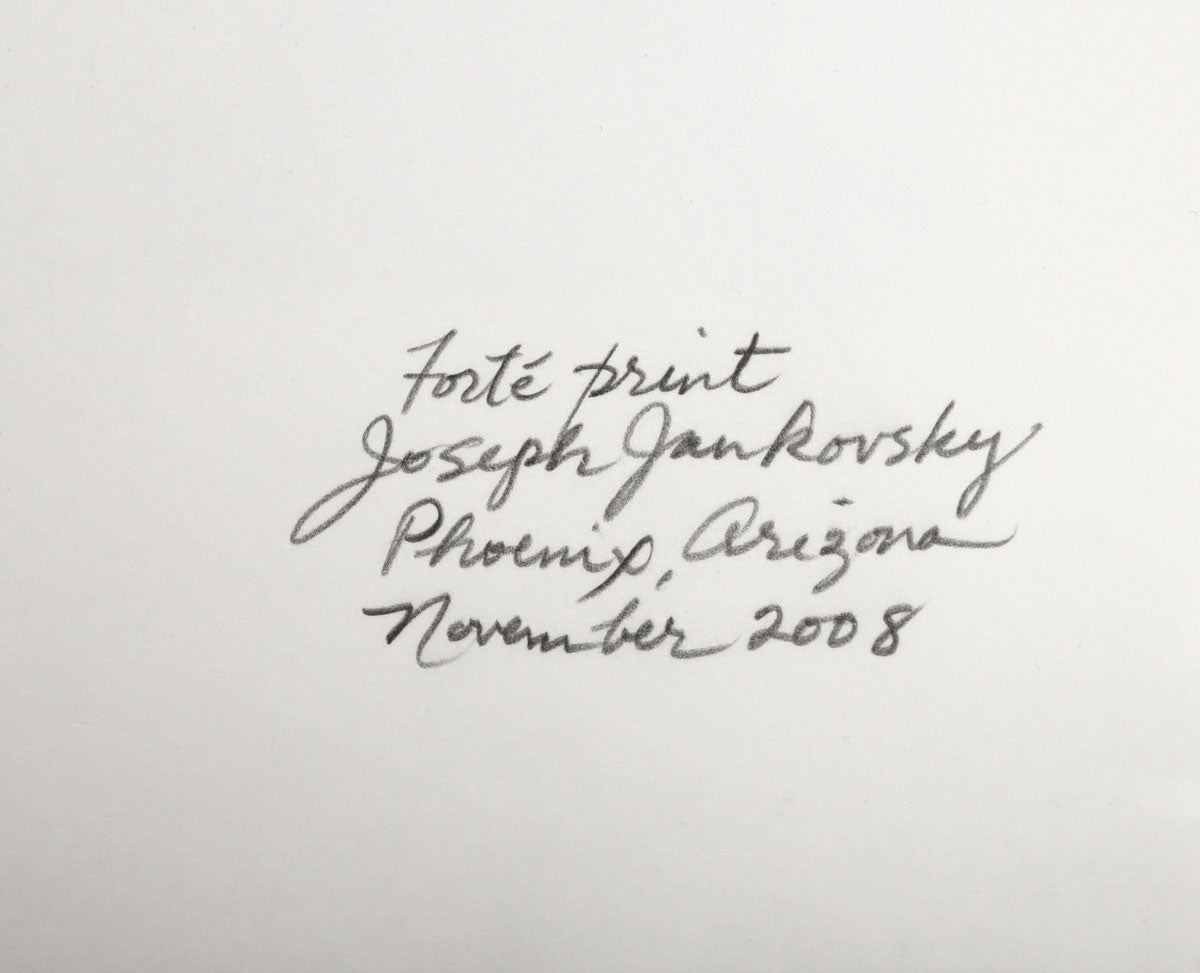 Forté print
Joseph Jankovsky
Phoenix, Arizona
November 2008